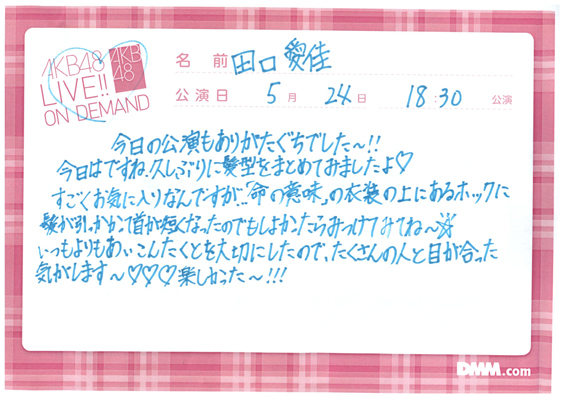 AKB48
LIVE!!
ON DEMAND
AKB
48
名前 田口愛佳
公演日 5月24日 18:30 公演
今日の公演もありがたぐちでした〜!!
今日はですね、久しぶりに髪型をまとめておましたよ♡
すごくお気に入りなんですが…「命の意味」の衣装の上にあるホックに
髪が引っかかって首が短くなったのでもしよかたらみつけてみてね〜
いつもよりもあいこんたくとを大切にしたので、たくさんの人と目が合った
気がします〜♡♡♡楽しかった〜!!!
DMM.com